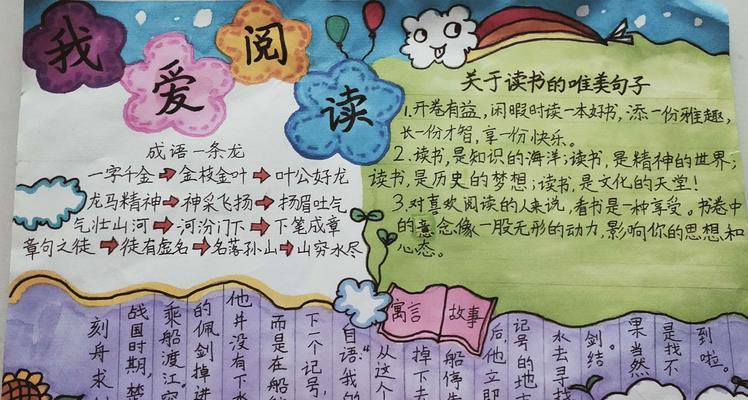 我爱阅读
成语一条龙
一字千金➡金枝金叶➡叶公好龙
龙马精神➡神采飞扬➡扬眉吐气
气壮山河➡河汾门下➡下笔成章
章句之徒➡徒有虚名➡名落孙山➡山穷水尽
关于读书的唯美句子
1.开卷有益,闲暇时读一本好书,添一份雅趣,
长一份才智,享一份快乐。
2.读书,是知识的海洋;读书,是精神的世界;
读书,是历史的梦想;读书,是文化的天堂!
3.对喜欢阅读的人来说,看书是一种享受。书卷中
的意念像一股无形的动力,影响你的思想和
心态。
寓言 故事
刻舟求
战国时期,楚
乘船渡江。
的佩剑掉进
他并没有下水
而是在船
下一个记号,
自语:“我的
从这个
掉下去
船停
后,他立即
记号的地
水去寻找
剑结。
果当然
是找不
到啦。